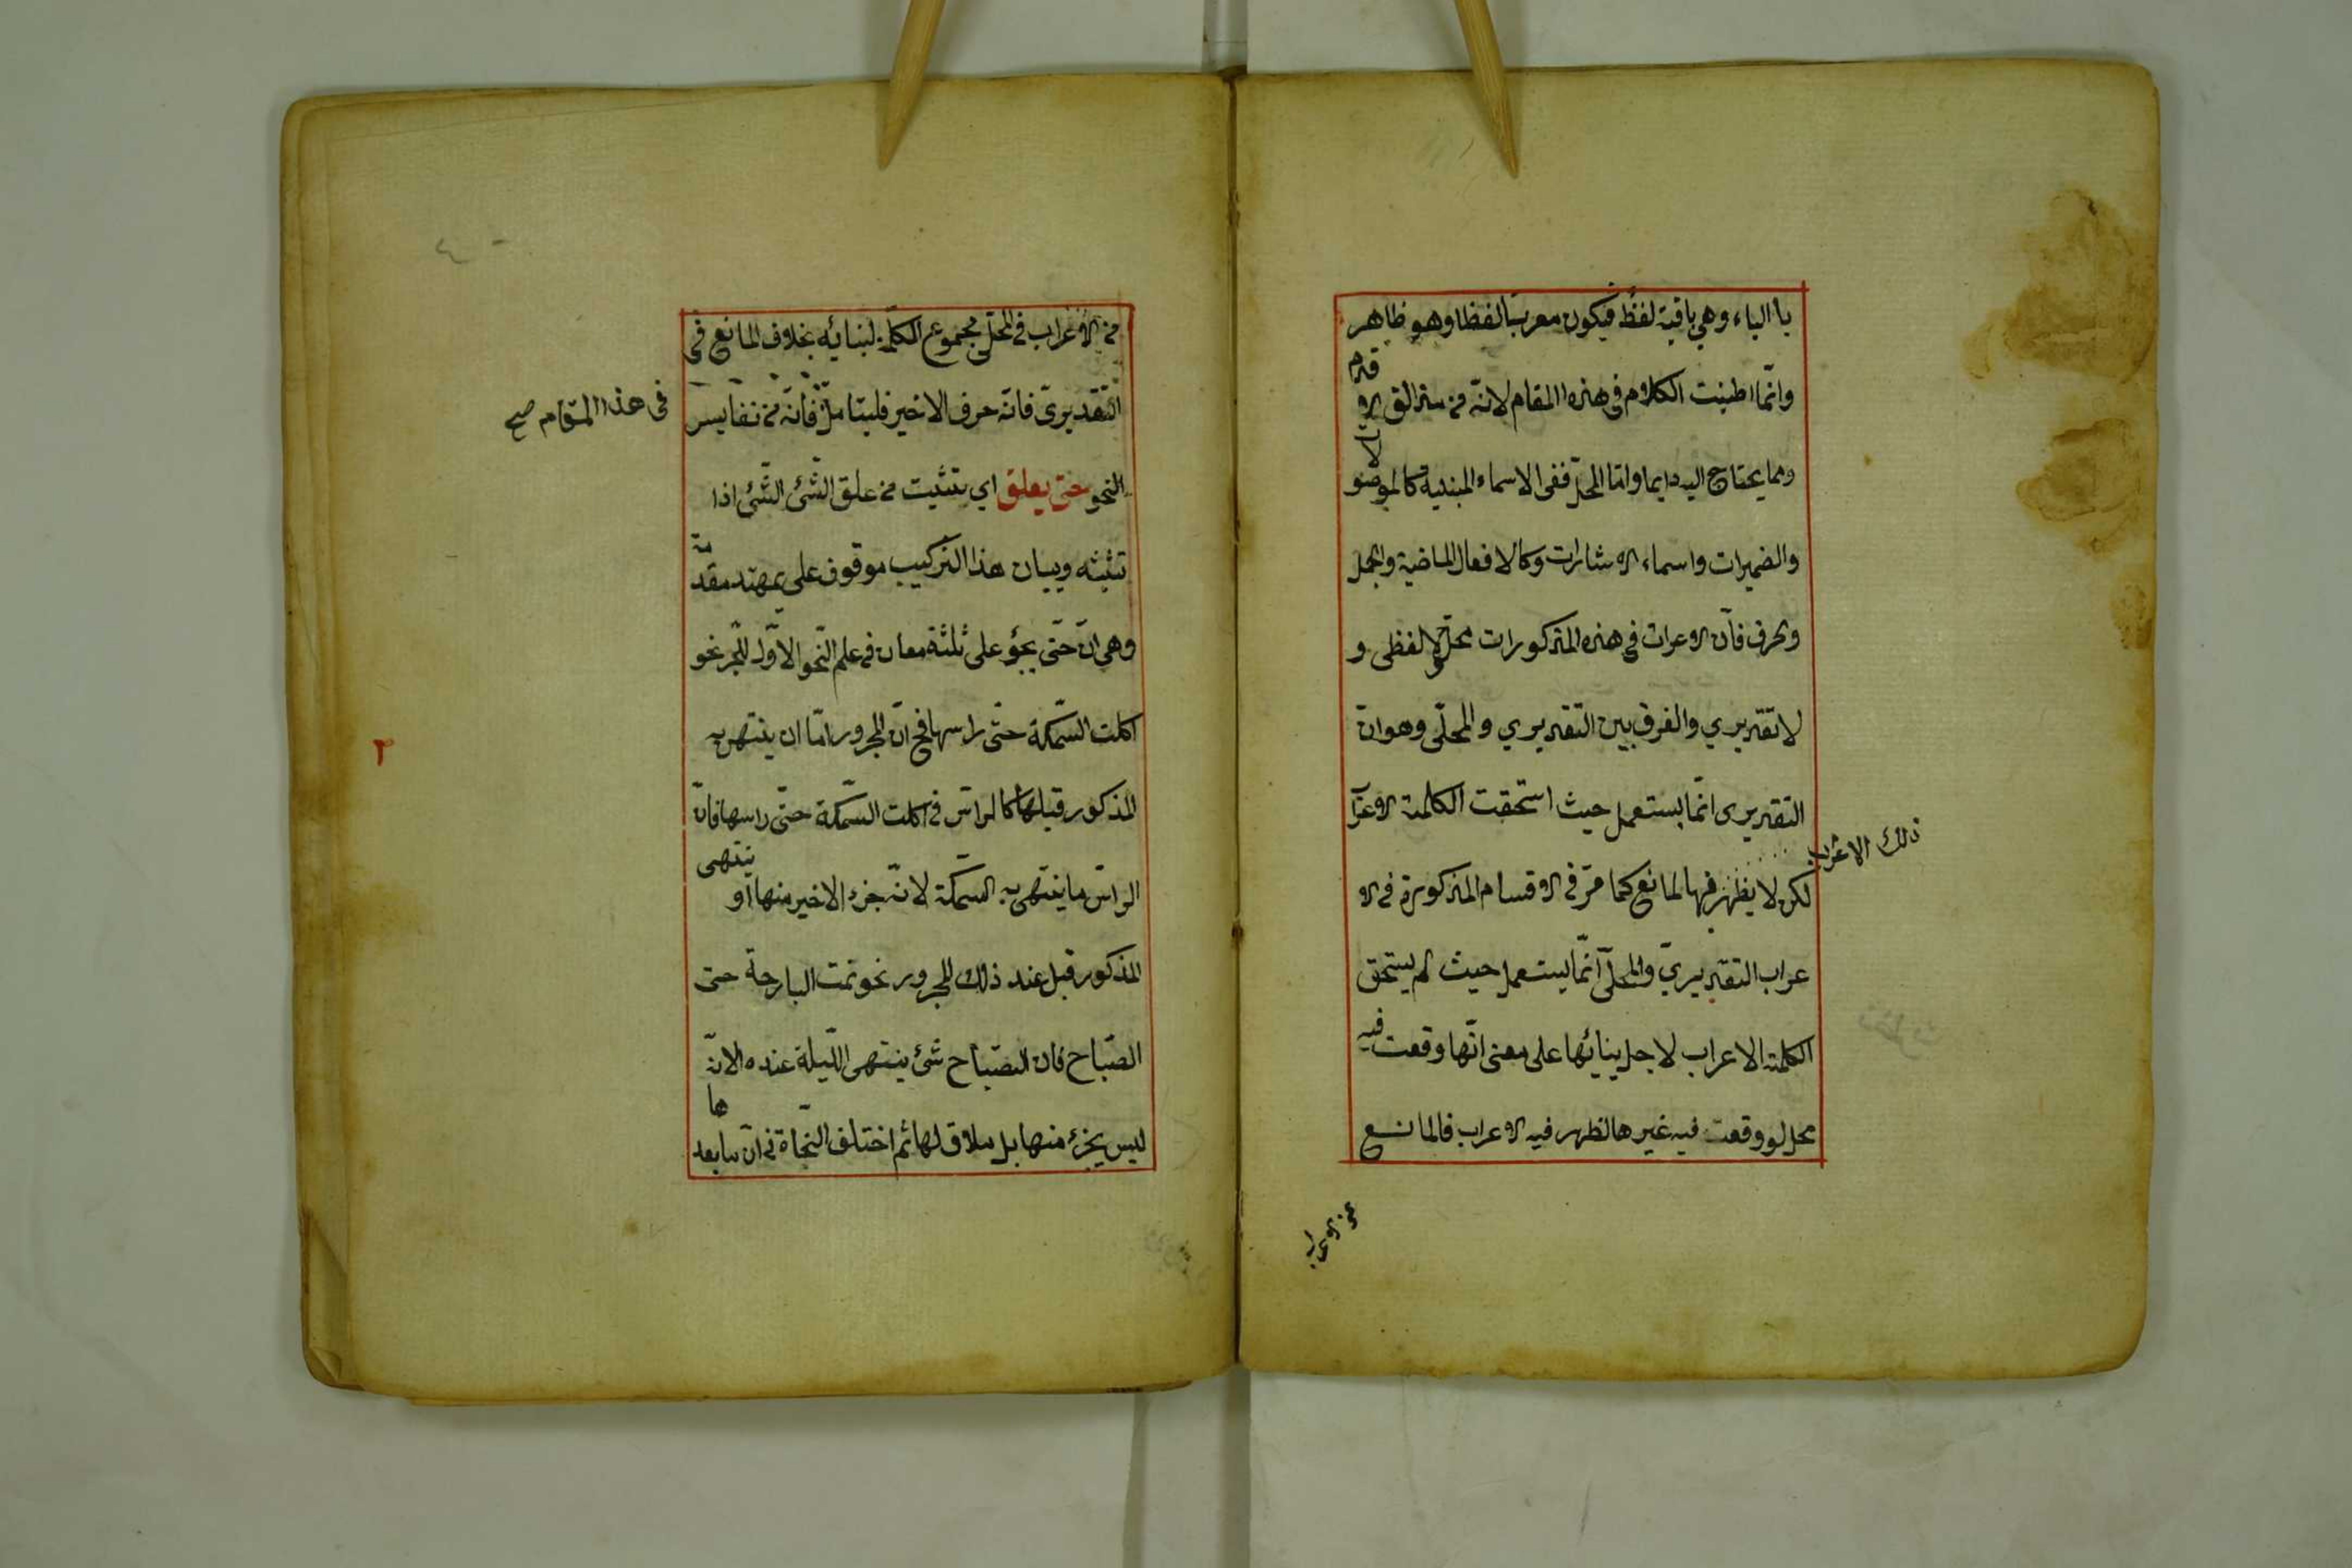 باالياء وهى باقية لفظ فيكون معربا لفظا وهو ظاهر
وانّما اطنبت الكلام فى هذه المقام لانّه من مزالق الا
قدم
ومما يحتاج اليه دايما وامّا المحلّ ففى الاسماء المبنية كالموصو
لات
والضميرات واسماء الاشارات وكالافعال الماضية والجمل
وحرف فانّ الاعراب فى هذه المذكورات محلّى لا لفظى و
لا تقديري والفرق بين التقديري والمحلّى وهو انّ
التقديرى انّما يستعمل حيث استحقت الكلمة الاعرا
ذلك الاعراب
لكن لا يظهر فيها لمانع كما مرّ فى الاقسام المذكورة فى الا
عراب التقديريّ والمحلّى انّما يستعمل حيث لم يستحق
الكلمة الاعراب لاجل بنائها على معنى انّها وقعت فيه
محل لو وقعت فيه غيرها لظهر فيه الاعراب فالمانع
من الاعراب
من الاعراب فى المحلّى مجموع الكلمة لبنائه بخلاف المانع فى
التّقديرىّ فانّه حرف الاخير فليتامّل فانّه من نفايس
فى هذا المقام صح
النحو حتى يعلق اي يتثبت من علق الشّئ الشّئ اذا
تثبّته وبيان هذا التركيب موقوف على تمهيد مقدّ
مة
وهى انّ حتّى يجؤ على ثلثة معان فى علم النّحو الاوّل للجّر نحو
اكلت السّمكة حتّى راسها فح انّ المجرور امّا ان ينتهى به
المذكور قبلها كالراس فى اكلت السّمكة حتّى راسها فانّ
الراس ما ينتهى به السّمكة لانّه جزء الاخير منها او
ينتهى
المذكور قبل عند ذلك المجرور نحو نمت البارحة حتى
الصّباح فان الصّباح شئ ينتهى اللّيلة عنده الا انّه
ليس بجزء منها بل ملاق لها ثم اختلف النّحاة فى انّ ما بعد
ها
٢